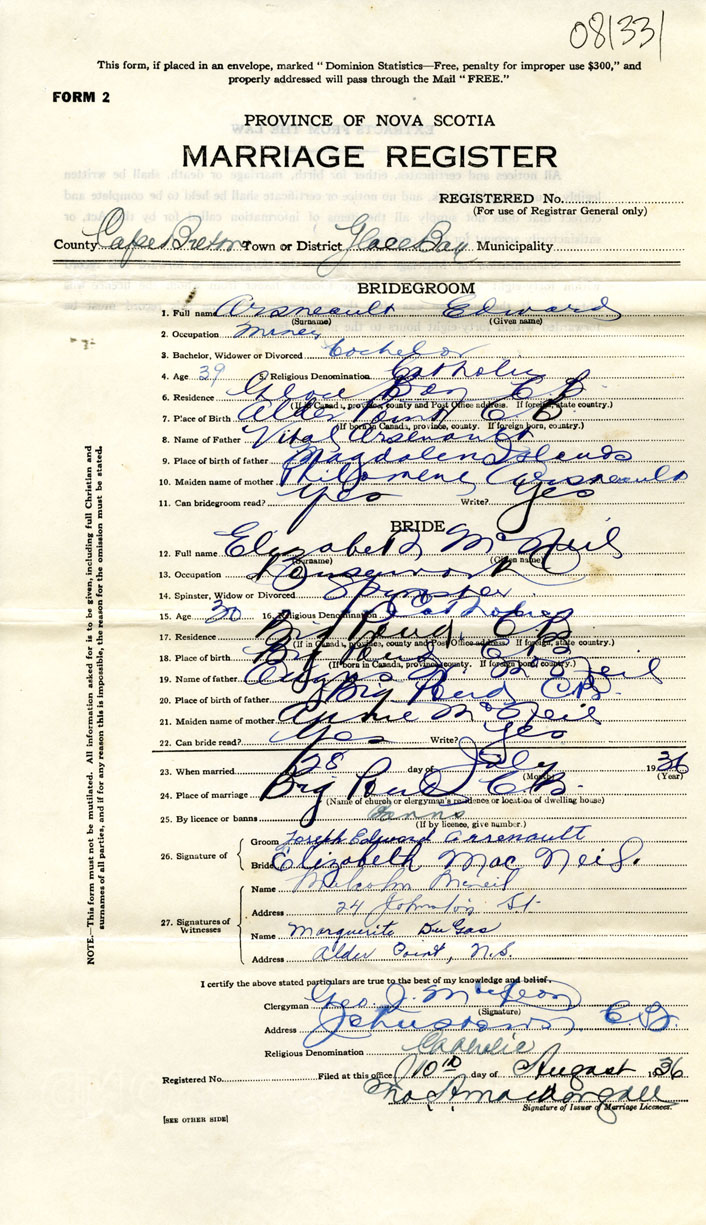 081331
This form, if placed in an envelope, marked "Dominion Statistics—Free, penalty for improper use $300," and
properly addressed will pass through the Mail "FREE."
FORM 2
PROVINCE OF NOVA SCOTIA
MARRIAGE REGISTER
REGISTERED No.
(For use of Registrar General only)
County Cape Breton Town or District Glace Bay Municipality
BRIDEGROOM
1. Full name Arsneault Edward
(Surname) (Given name)
2. Occupation Miner
3. Bachelor, Widower or Divorced Bachelor
4. Age 39 5. Religious Denomination Catholic
6. Residence Glace Bay C B
(If in Canada, province, county and Post Office address. If foreign, state country.)
7. Place of Birth Alder Point C B
(If born in Canada, province, county. If foreign born, country.)
8. Name of Father Vital Arsenault
9. Place of birth of father Magdalen Islands
10. Maiden name of mother Philomene Arsneault
11. Can bridegroom read? Yes Write? Yes
BRIDE
12. Full name Elizabeth McNeil
(Surname) (Given name)
13. Occupation Housework
14. Spinster, Widow or Divorced Spinster
15. Age 30 16. Religious Denomination Catholic
17. Residence Big Pond C B
(If in Canada, province, county and Post Office address. If foreign, state country.)
18. Place of birth Big Pond C B
(If born in Canada, province, county. If foreign born, country.)
19. Name of father Angus McNeil
20. Place of birth of father Big Pond C.B.
21. Maiden name of mother Annie McNeil
22. Can bride read? Yes Write? Yes
23. When married 28 day of July 1936
(Month) (Year)
24. Place of marriage Big Pond C.B.
(Name of church or clergyman's residence or location of dwelling house)
25. By licence or banns Banns
(If by licence, give number.)
26. Signature of
Groom Joseph Edward Arsenault
Bride Elizabeth Mac Neil.
27. Signatures of Witnesses
Name Malcolm McNeil
Address 24 Johnston St.
Name Marguerite DuGas
Address Alder Point, N.S.
I certify the above stated particulars are true to the best of my knowledge and belief.
Clergyman Geo. J.
(Signature)
Address Johnstown C.B.
Religious Denomination Catholic
Registered No. Filed at this office 10th day of August 1936
Signature of Issuer of Marriage Licences.
[SEE OTHER SIDE]
NOTE.—This form must not be mutilated. All information asked for is to be given, including full Christian and
surnames of all parties, and if for any reason this is impossible, the reason for the omission must be stated.